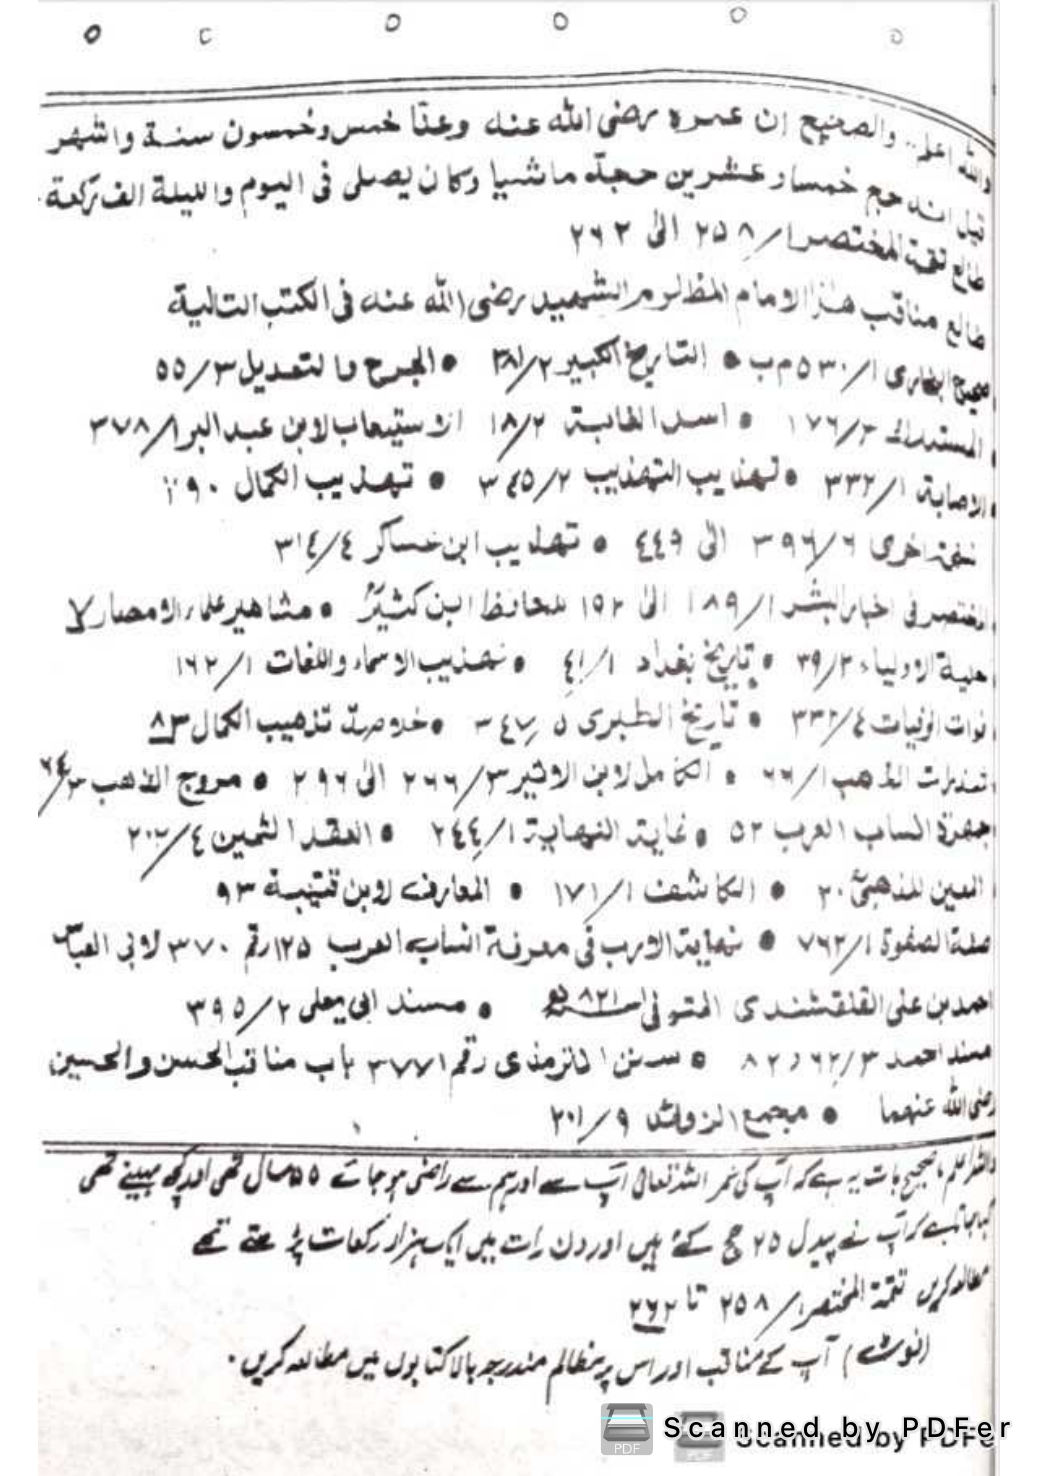 والله اعلم.. والصحيح ان عمره رضى الله عنه وعنّا خمس وخمسون سنة واشهر
قيل انه حج خمسا وعشرين حجة ماشيا وكان يصلى فى اليوم والليلة الف ركعة.
طالع تتمة المختصر ١/ ٢٥٨ الى ٢٦٢
طالع مناقب هذا الامام المظلوم الشهيد رضى الله عنه فى الكتب التالية
صحيح البخارى ١/ ٥٣٠ ● التاريخ الكبير ٢/ ٣٨١ ● الجرح والتعديل ٣/ ٥٥
المستدرك ٣/ ١٧٦ ● اسد الغابة ٢/ ١٨ الاستيعاب لابن عبد البر ١/ ٣٧٨
الاصابة ١/ ٣٣٢ ● تهذيب التهذيب ٢/ ٣٤٥ ● تهذيب الكمال ٢٩٠
نسخة اخرى ٦/ ٣٩٦ الى ٤٤٩ ● تهذيب ابن عساكر ٤/ ٣١٤
المختصر فى اخبار البشر ١/ ١٨٩ الى ١٩٢ للحافظ ابن كثيرؒ ● مشاهير علماء الامصار ٧
حلية الاولياء ٢/ ٣٩ ● تاريخ بغداد ١/ ١٤١ ● تهذيب الاسماء واللغات ١/ ١٦٢
وفات الوفيات ٤/ ٣٣٢ ● تاريخ الطبرى ٥/ ٣٤٧ ● خلاصة تذهيب الكمال ٨٣
شذرات الذهب ١/ ٦٦ ● الكامل لابن الاثير ٣/ ٢٦٦ الى ٢٩٦ ● مروج الذهب ٣/ ٦٤
جمهرة انساب العرب ٥٢ ● غاية النهاية ١/ ٢٤٤ ● العقد الثمين ٤/ ٢٠٢
العين للذهبىؒ ٢٠ ● الكاشف ١/ ١٧١ ● المعارف لابن قتيبة ٩٣
صفة الصفوة ١/ ٧٦٢ ● نهاية الارب فى معرفة انساب العرب ١٢٥ رقم ٣٧٠ لابى العباس
احمد بن على القلقشندى المتوفى ٨٢١ھ ● مسند ابى يعلى ٢/ ٣٩٥
مسند احمد ٣/ ٦٢ و ٨٢ ● سنن الترمذى رقم ٣٧٧١ باب مناقب الحسن والحسين
رضى الله عنهما ● مجمع الزوائد ٩/ ٢٠١
واللہ اعلم صحیح بات یہ ہے کہ آپ کی عمر اللہ تعالی آپ سے اور ہم سے راضی ہو جائے ۵۵ سال تھی اور کچھ مہینے تھی
کہا جاتا ہے کہ آپ نے پیدل ۲۵ حج کئے ہیں اور دن رات میں ایک ہزار رکعات پڑھتے تھے
مطالعہ کریں تتمۃ المختصر ۱/ ۲۵۸ تا ۲۶۲
(نوٹ) آپ کے مناقب اور اس پر مظالم مندرجہ بالا کتابوں میں مطالعہ کریں.
Scanned by PDFer
Scanned by PDFe
PDF